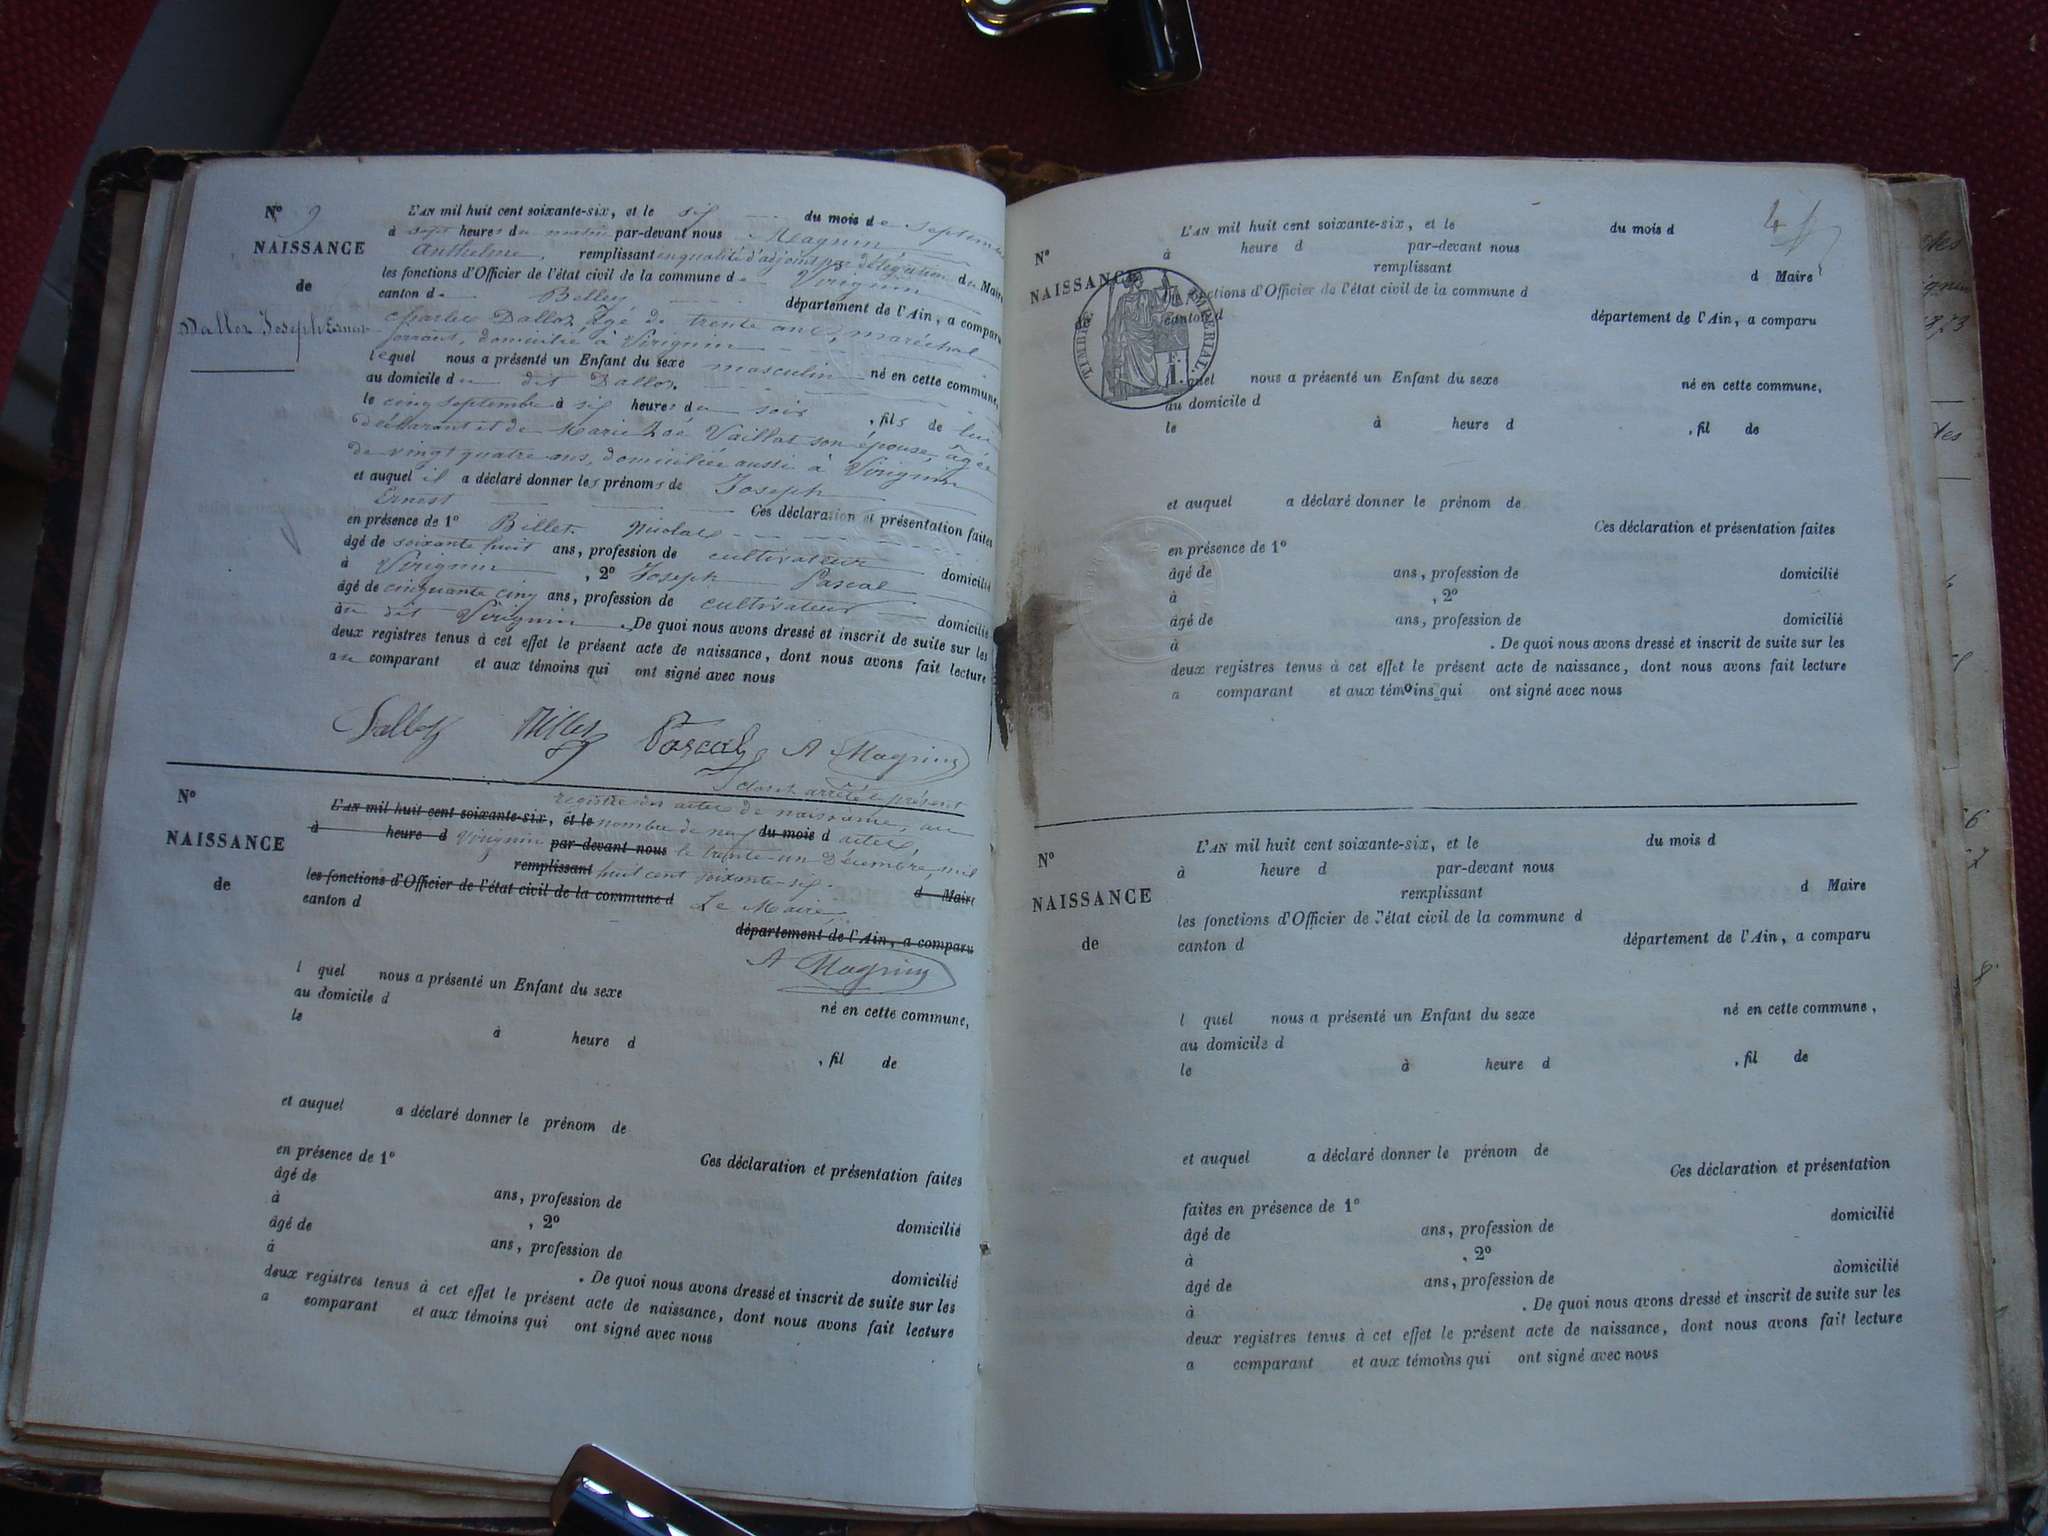 N° 9
NAISSANCE
de
Dalloz Joseph Ernest
L'AN mil huit cent soixante-six, et le six du mois de Septembre
à sept heures du matin par-devant nous Magnin
Anthelme, remplissant en qualité d'adjoint par délégation du Maire
les fonctions d'Officier de l'état civil de la commune de Virignin
canton de Belley département de l'Ain, a comparu
Charles Dalloz, âgé de trente ans, maréchal
ferrant, domicilié à Virignin
lequel nous a présenté un Enfant du sexe masculin né en cette commune,
au domicile du dit Dalloz
le cinq septembre à six heures du soir, fils de lui
déclarant et de Marie Zoé Vaillat son épouse, âgée
de vingt quatre ans, domiciliée aussi à Virignin
et auquel il a déclaré donner les prénoms de Joseph
Ernest Ces déclaration et présentation faites
en présence de 1° Billet Nicolas
âgé de soixante huit ans, profession de cultivateur domicilié
à Virignin, 2° Joseph Pascal
âgé de cinquante cinq ans, profession de cultivateur domicilié
au dit Virignin. De quoi nous avons dressé et inscrit de suite sur les
deux registres tenus à cet effet le présent acte de naissance, dont nous avons fait lecture
au comparant et aux témoins qui ont signé avec nous
Dalloz Billet Pascal A Magnin
N°
NAISSANCE
de
clos et arrêté le présent
registre des actes de naissance, au
L'AN mil huit cent soixante-six, et le nombre de neuf du mois d actes,
à heure d Virignin par-devant nous le trente-un Décembre, mil
remplissant huit cent soixante-six.
les fonctions d'Officier de l'état civil de la commune d Le Maire d Maire
canton d
département de l'Ain, a comparu
A Magnin
l quel nous a présenté un Enfant du sexe
né en cette commune,
au domicile d
le à heure d
, fil de
et auquel a déclaré donner le prénom de
Ces déclaration et présentation faites
en présence de 1°
âgé de ans, profession de
domicilié
à , 2°
âgé de ans, profession de
domicilié
à . De quoi nous avons dressé et inscrit de suite sur les
deux registres tenus à cet effet le présent acte de naissance, dont nous avons fait lecture
a comparant et aux témoins qui ont signé avec nous
N°
NAISSANCE
de
TIMBRE IMPERIAL.
L'AN mil huit cent soixante-six, et le du mois d
à heure d par-devant nous
remplissant d Maire
les fonctions d'Officier de l'état civil de la commune d
canton d département de l'Ain, a comparu
l quel nous a présenté un Enfant du sexe né en cette commune,
au domicile d
le à heure d , fil de
et auquel a déclaré donner le prénom de
Ces déclaration et présentation faites
en présence de 1°
âgé de ans, profession de domicilié
à , 2°
âgé de ans, profession de domicilié
à . De quoi nous avons dressé et inscrit de suite sur les
deux registres tenus à cet effet le présent acte de naissance, dont nous avons fait lecture
a comparant et aux témoins qui ont signé avec nous
N°
NAISSANCE
de
L'AN mil huit cent soixante-six, et le du mois d
à heure d par-devant nous
remplissant d Maire
les fonctions d'Officier de l'état civil de la commune d
canton d département de l'Ain, a comparu
l quel nous a présenté un Enfant du sexe né en cette commune,
au domicile d
le à heure d , fil de
et auquel a déclaré donner le prénom de
Ces déclaration et présentation
faites en présence de 1° domicilié
âgé de ans, profession de
à , 2° domicilié
âgé de ans, profession de
à . De quoi nous avons dressé et inscrit de suite sur les
deux registres tenus à cet effet le présent acte de naissance, dont nous avons fait lecture
a comparant et aux témoins qui ont signé avec nous